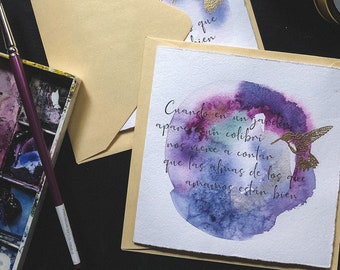 que
bien
Cuando en un jardín
aparece un colibrí
nos viene a contar
que las almas de los que
amamos están bien